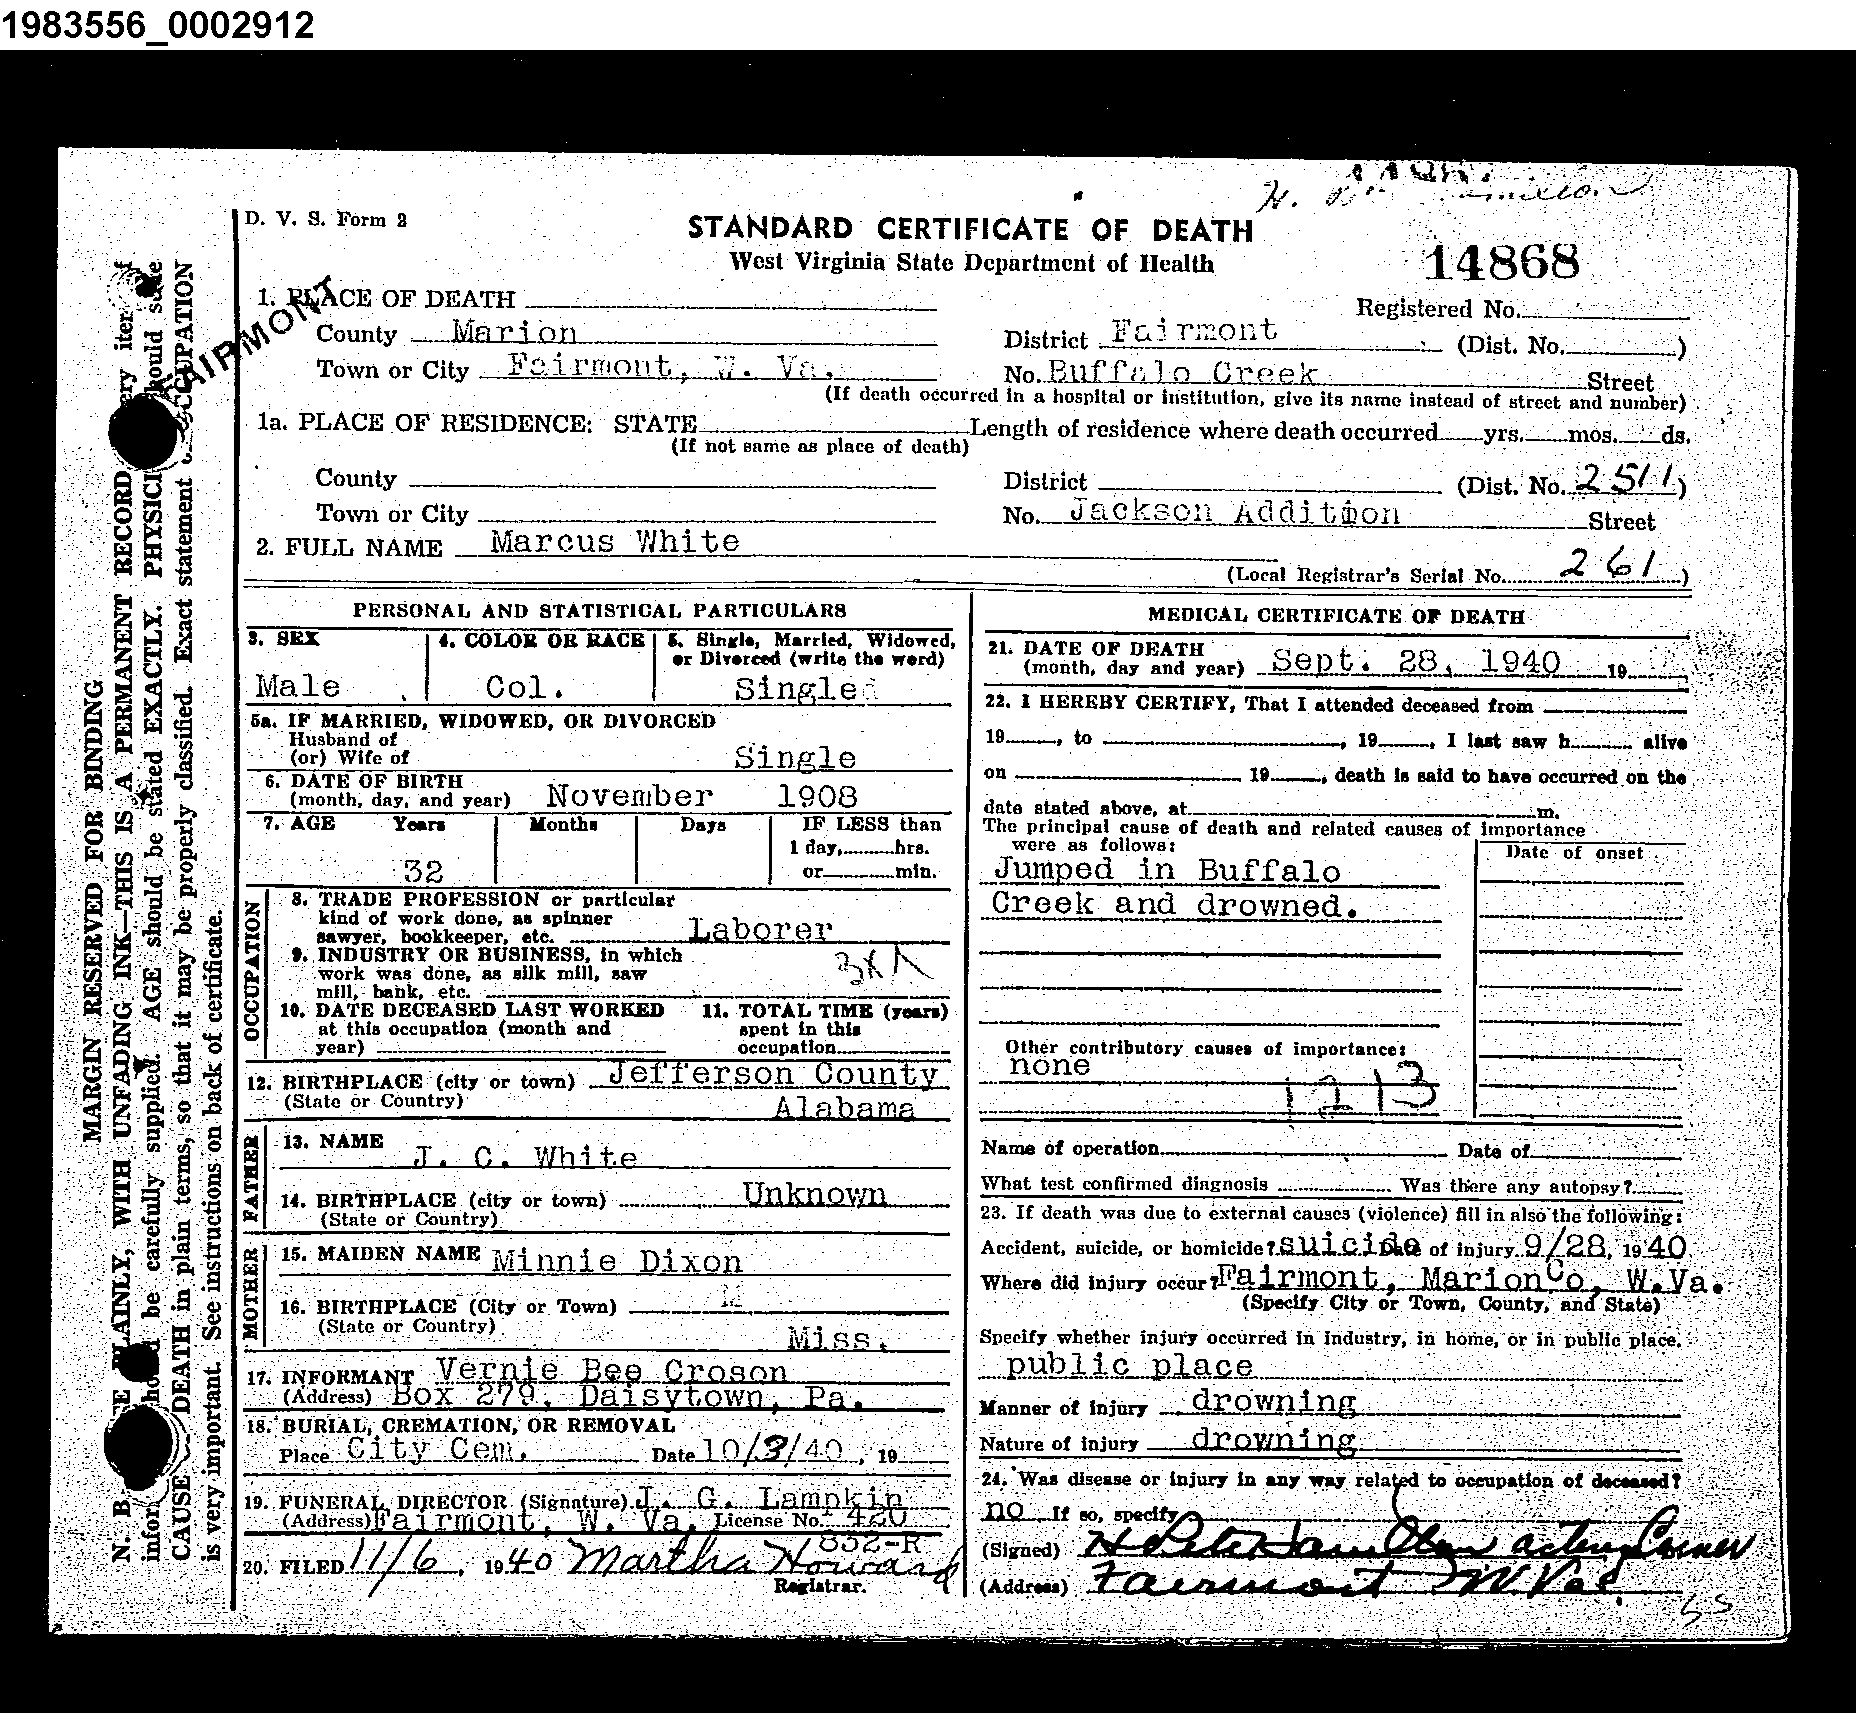 1983556_0002912
H.
D. V. S. Form 2
STANDARD CERTIFICATE OF DEATH
West Virginia State Department of Health
14868
Registered No.
1. PLACE OF DEATH
FAIRMONT
County Marion District Fairmont (Dist. No. )
Town or City Fairmont, W. Va. No. Buffalo Creek Street
(If death occurred in a hospital or institution, give its name instead of street and number)
1a. PLACE OF RESIDENCE: STATE Length of residence where death occurred yrs. mos. ds.
(If not same as place of death)
County District (Dist. No. 2511)
Town or City No. Jackson Addition Street
2. FULL NAME Marcus White
(Local Registrar's Serial No. 261)
PERSONAL AND STATISTICAL PARTICULARS
3. SEX 4. COLOR OR RACE 5. Single, Married, Widowed,
or Divorced (write the word)
Male Col. Single
5a. IF MARRIED, WIDOWED, OR DIVORCED
Husband of
(or) Wife of Single
6. DATE OF BIRTH
(month, day, and year) November 1908
7. AGE Years Months Days IF LESS than
1 day, hrs.
32 or min.
OCCUPATION
8. TRADE PROFESSION or particular
kind of work done, as spinner
sawyer, bookkeeper, etc. Laborer
9. INDUSTRY OR BUSINESS, in which
work was done, as silk mill, saw
mill, bank, etc.
10. DATE DECEASED LAST WORKED 11. TOTAL TIME (years)
at this occupation (month and spent in this
year) occupation
12. BIRTHPLACE (city or town) Jefferson County
(State or Country) Alabama
FATHER
13. NAME J. C. White
14. BIRTHPLACE (city or town) Unknown
(State or Country)
MOTHER
15. MAIDEN NAME Minnie Dixon
16. BIRTHPLACE (City or Town)
(State or Country) Miss.
17. INFORMANT Vernie Bee Croson
(Address) Box 279, Daisytown, Pa.
18. BURIAL, CREMATION, OR REMOVAL
Place City Cem. Date 10/3/40, 19
19. FUNERAL DIRECTOR (Signature) J. G. Lampkin
(Address) Fairmont, W. Va. License No. 420
832-R
20. FILED 11/6, 1940 Martha Howard
Registrar.
MEDICAL CERTIFICATE OF DEATH
21. DATE OF DEATH
(month, day and year) Sept. 28, 1940 19
22. I HEREBY CERTIFY, That I attended deceased from
19 , to , 19 , I last saw h alive
on 19 , death is said to have occurred on the
date stated above, at m.
The principal cause of death and related causes of importance
were as follows:
Date of onset
Jumped in Buffalo
Creek and drowned.
Other contributory causes of importance:
none
1213
Name of operation Date of
What test confirmed diagnosis Was there any autopsy?
23. If death was due to external causes (violence) fill in also the following:
Accident, suicide, or homicide? suicide Date of injury 9/28, 1940
Where did injury occur? Fairmont, Marion Co, W.Va.
(Specify City or Town, County, and State)
Specify whether injury occurred in industry, in home, or in public place.
public place
Manner of injury drowning
Nature of injury drowning
24. Was disease or injury in any way related to occupation of deceased?
no If so, specify
(Signed) Hamilton acting Coroner
(Address) Fairmont W. Va.
55
MARGIN RESERVED FOR BINDING
N. B. PLAINLY, WITH UNFADING INK—THIS IS A PERMANENT RECORD
be carefully supplied. AGE should be stated EXACTLY. PHYSICI should
CAUSE DEATH in plain terms, so that it may be properly classified. Exact statement OCCUPATION
is very important. See instructions on back of certificate.